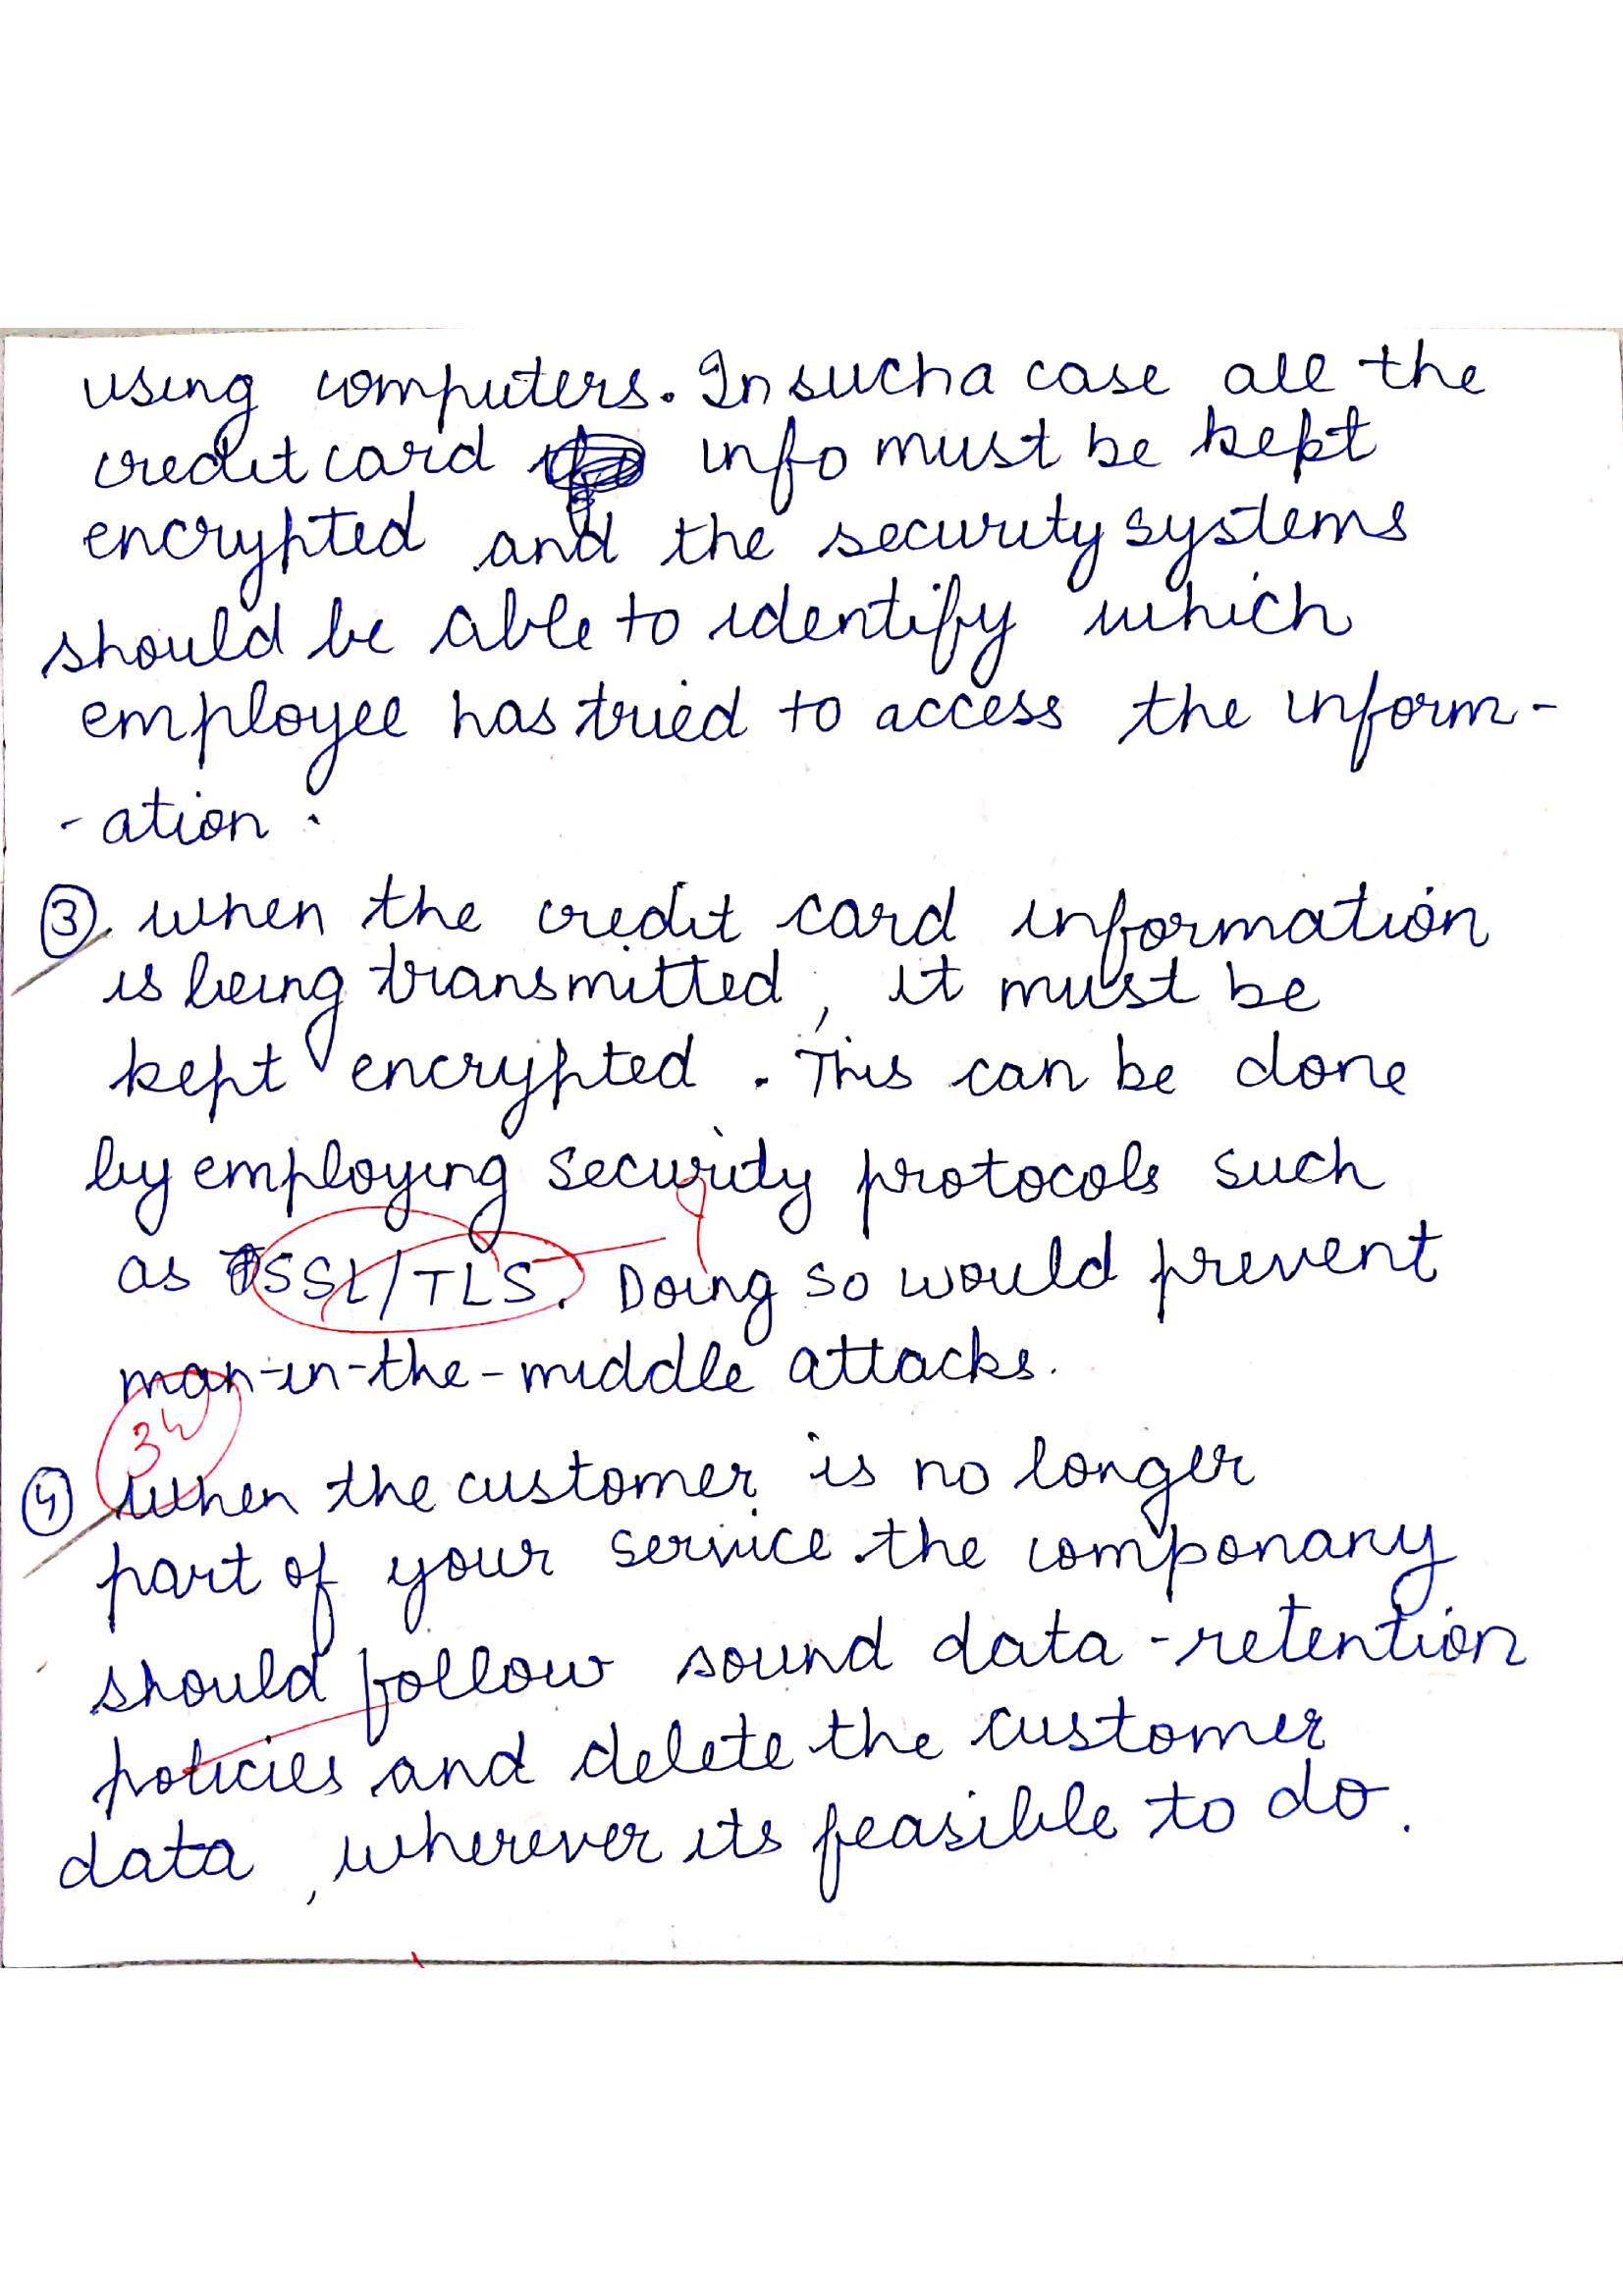 using computers. In such a case all the
credit card info must be kept
encrypted and the security systems
should be able to identify which
employee has tried to access the inform-
-ation.
3. when the credit card information
is being transmitted, it must be
kept encrypted. This can be done
by employing security protocols such
as SSL/TLS. Doing so would prevent
man-in-the-middle attacks.
4 When the customer is no longer
part of your service the componany
should follow sound data-retention
policies and delete the customer
data, wherever its feasible to do.